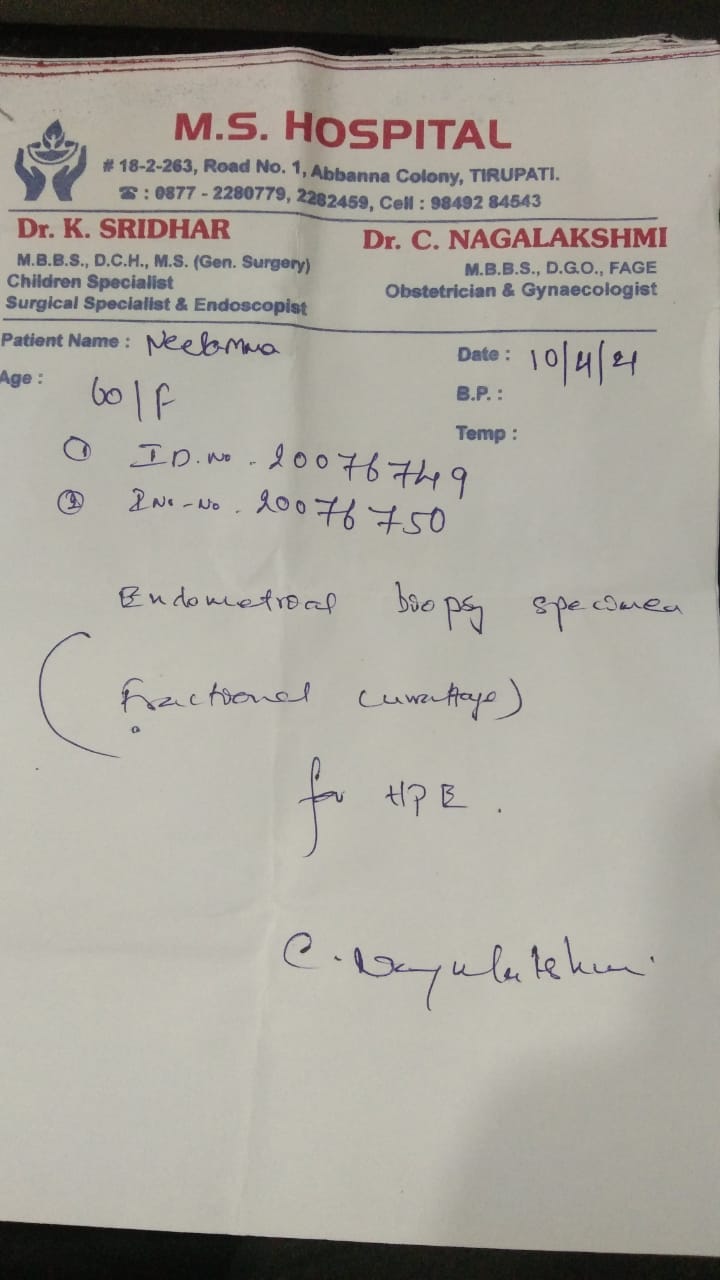 M.S. HOSPITAL
# 18-2-263, Road No. 1, Abbanna Colony, TIRUPATI.
☎ : 0877 - 2280779, 2282459, Cell : 98492 84543
Dr. K. SRIDHAR
M.B.B.S., D.C.H., M.S. (Gen. Surgery)
Children Specialist
Surgical Specialist & Endoscopist
Dr. C. NAGALAKSHMI
M.B.B.S., D.G.O., FAGE
Obstetrician & Gynaecologist
Patient Name : Neelamma
Date : 10/4/21
Age : 60/F
B.P. :
Temp :
① ID. No. 20076749
② No. 20076750
Endometrial biopsy specimen
(Fractional curettage)
for HPE.
C. Nagalakshmi